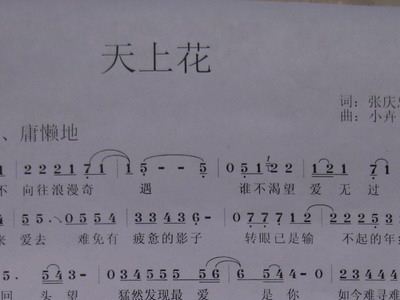 天上花
词：张庆
曲：小卉
、庸懒地
1 2 2 2 1 7 1 5 - - 5 0 5 1 2 1 2 1 7 1
不 向往浪漫奇 遇 谁不渴望 爱 无 过
5 5 5 0 5 5 4 3 3 4 3 6 - 0 7 7 7 1 2 1 2 2 2 1
来 爱去 难免有 疲惫的影子 转眼已是输 不起的年
2 5 4 3 - 0 3 4 5 5 5 5 6 6 5 4 3 0 3 4 3 4
回 头 望 猛然发现最 爱 是 你 如今难寻